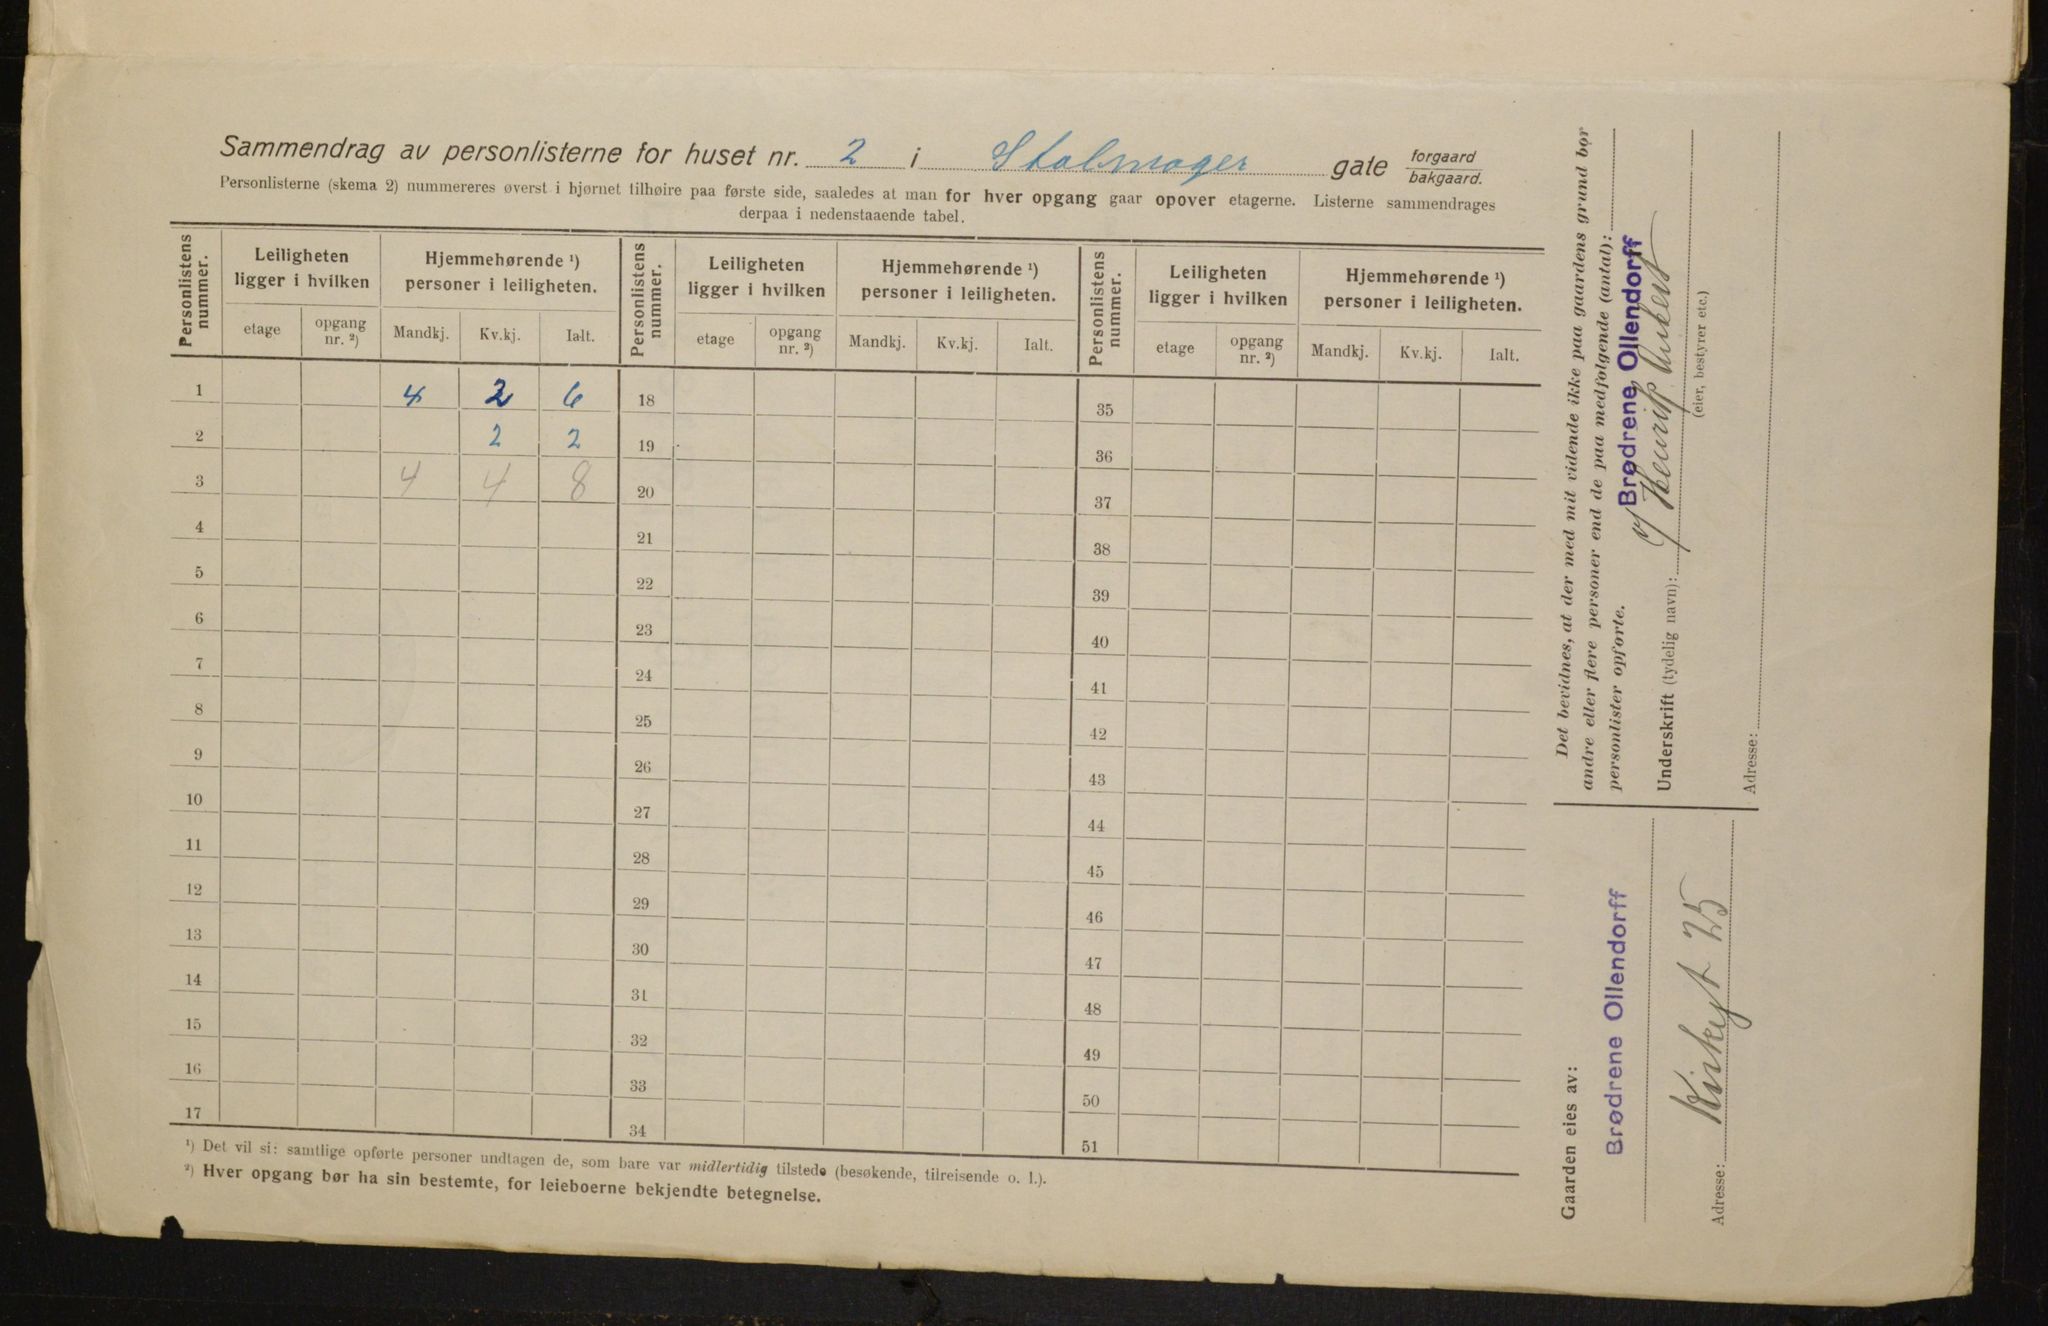 Sammendrag av personlisterne for huset nr. 2 i Stolmager gate forgaard bakgaard.
Personlisterne (skema 2) nummereres øverst i hjørnet tilhøire paa første side, saaledes at man for hver opgang gaar opover etagerne. Listerne sammendrages
derpaa i nedenstaaende tabel.
Personlistens nummer. Leiligheten ligger i hvilken Hjemmehørende ¹) personer i leiligheten. Personlistens nummer. Leiligheten ligger i hvilken Hjemmehørende ¹) personer i leiligheten. Personlistens nummer. Leiligheten ligger i hvilken Hjemmehørende ¹) personer i leiligheten.
etage opgang nr. ²) Mandkj. Kv.kj. Ialt. etage opgang nr. ²) Mandkj. Kv.kj. Ialt. etage opgang nr. ²) Mandkj. Kv.kj. Ialt.
1 4 2 6 18 35
2 2 2 19 36
3 4 4 8 20 37
4 21 38
5 22 39
6 23 40
7 24 41
8 25 42
9 26 43
10 27 44
11 28 45
12 29 46
13 30 47
14 31 48
15 32 49
16 33 50
17 34 51
¹) Det vil si: samtlige opførte personer undtagen de, som bare var midlertidig tilstede (besøkende, tilreisende o. l.).
²) Hver opgang bør ha sin bestemte, for leieboerne bekjendte betegnelse.
Det bevidnes, at der med mit vidende ikke paa gaardens grund bør
andre eller flere personer end de paa medfølgende (antal):
personlister opførte.
Brødrene Ollendorff
Underskrift (tydelig navn): Henrik
(eier, bestyrer etc.)
Adresse:
Gaarden eies av:
Brødrene Ollendorff
Adresse: Kirkegt 25